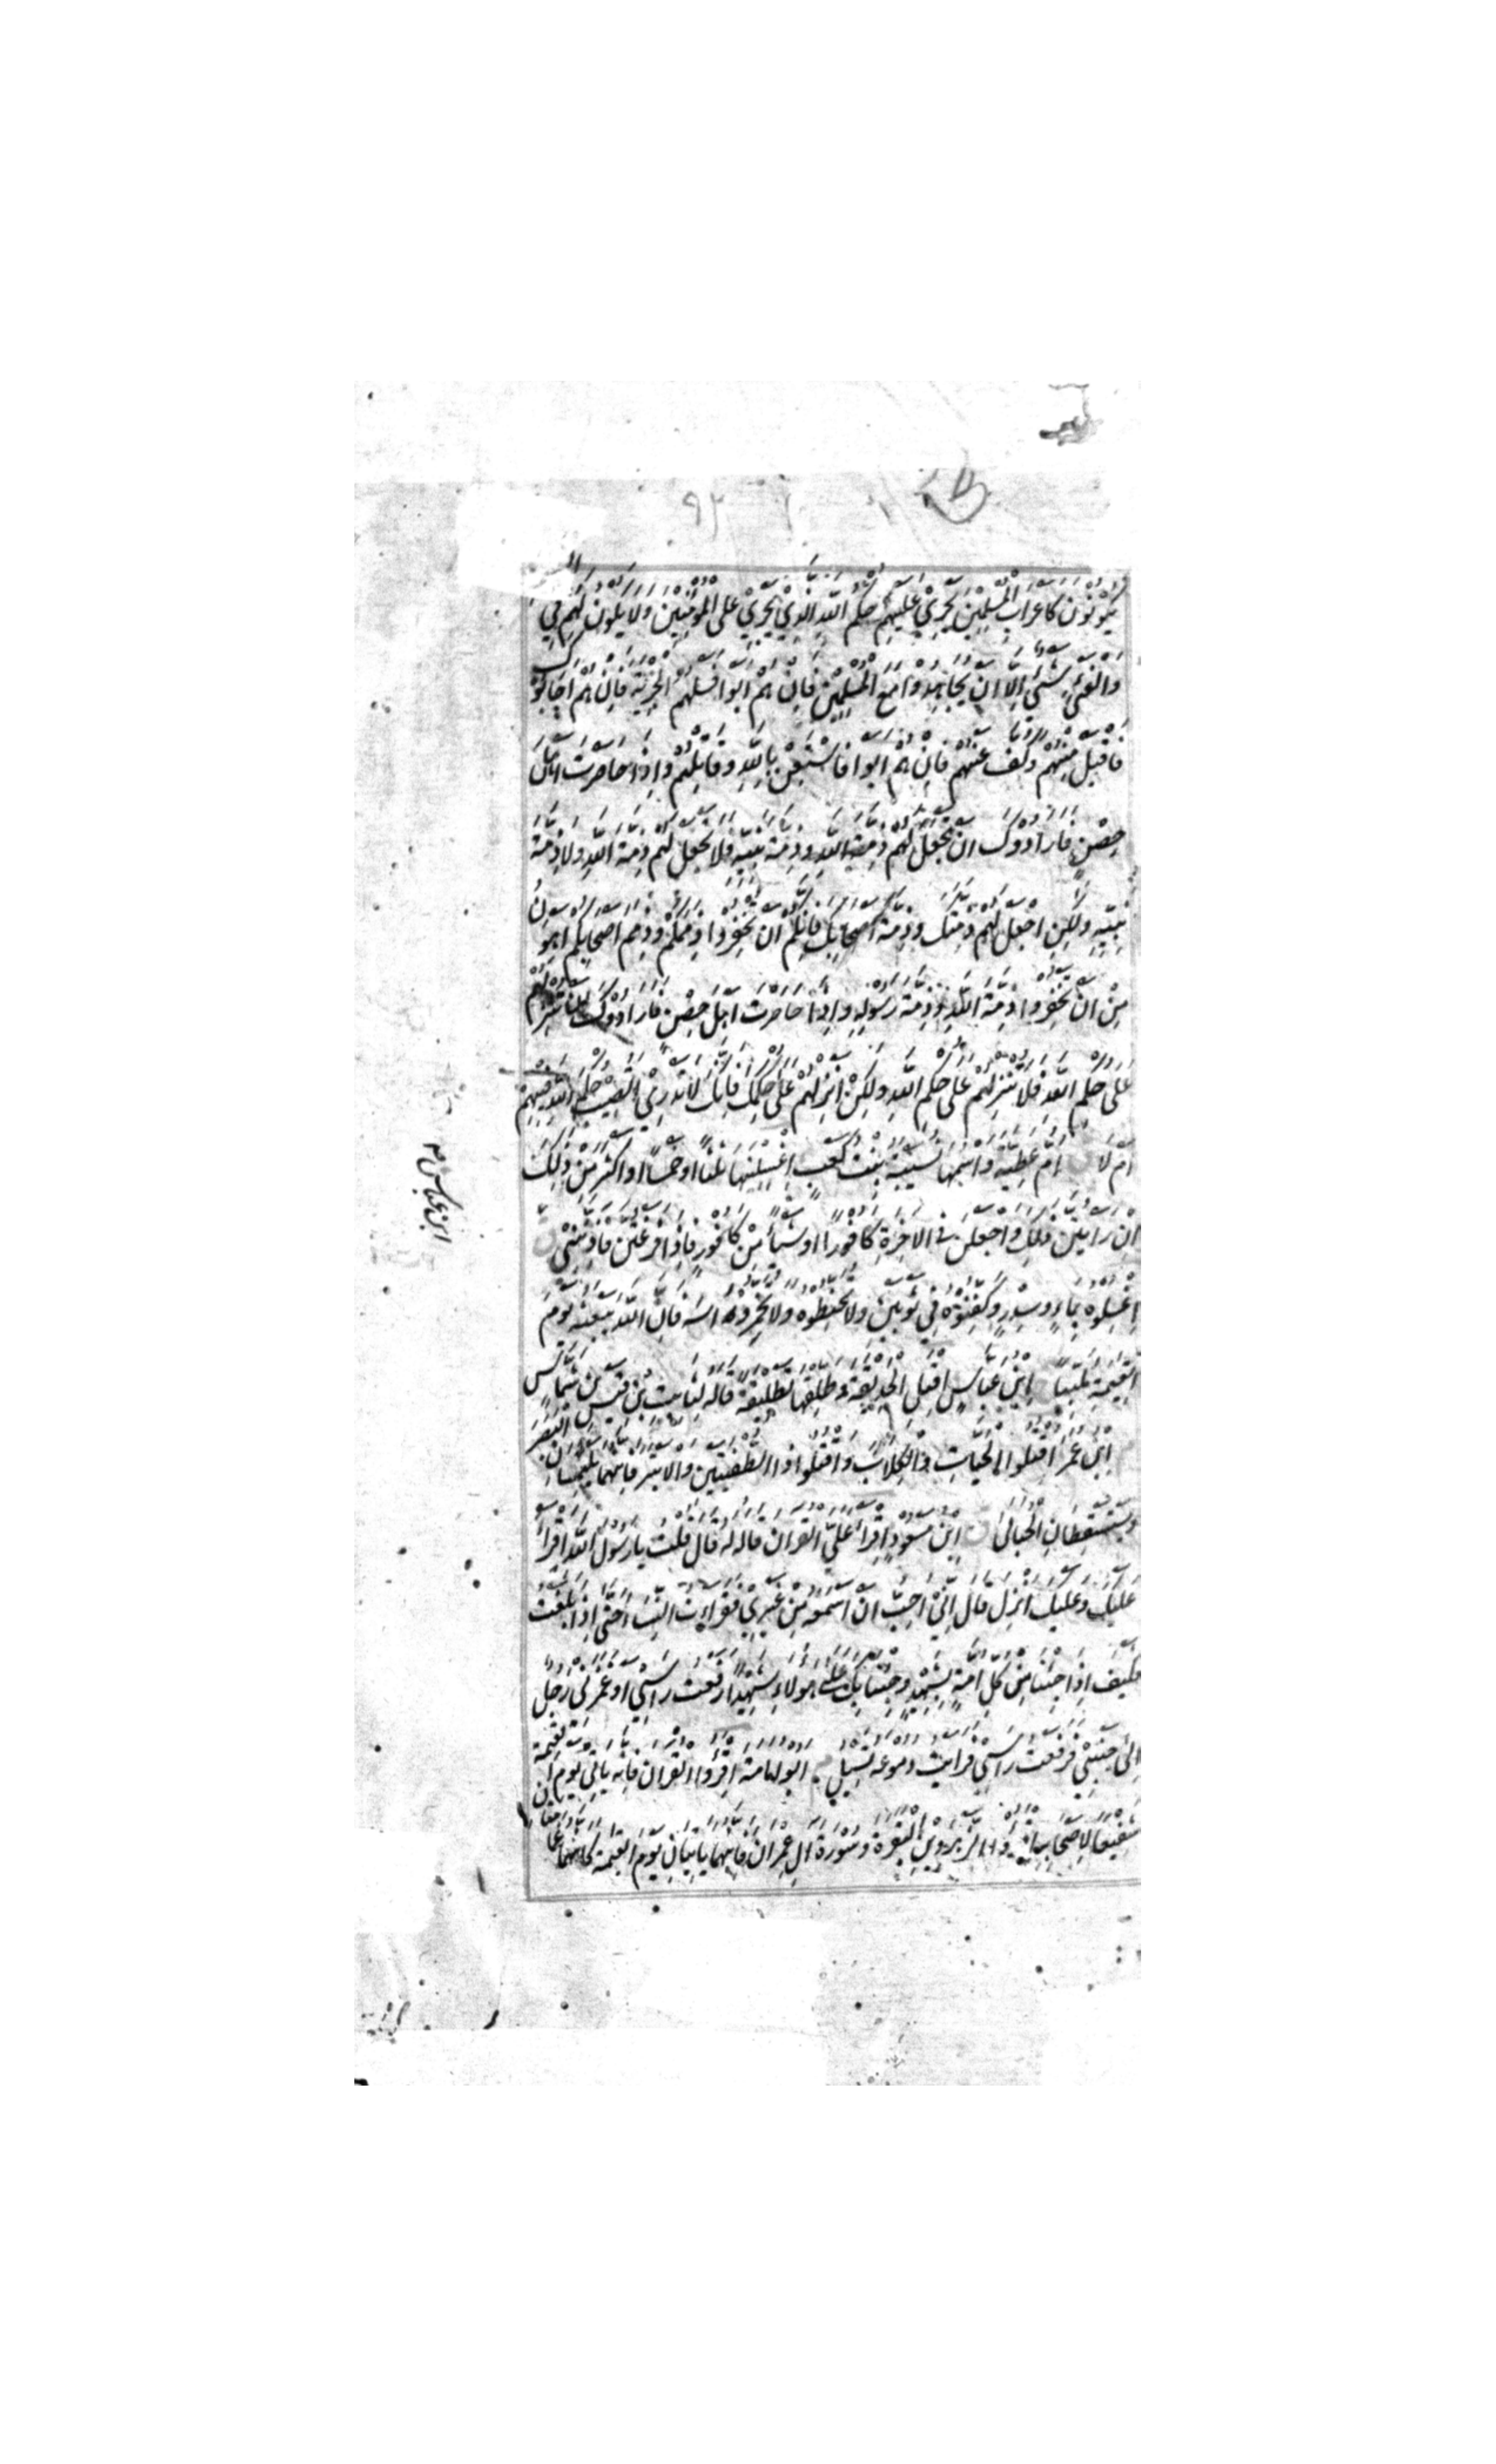 ٩٢
يَكُوْنُوْنَ كَاَعْرَابِ الْمُسْلِمِيْنَ يَجْرِيْ عَلَيْهِمْ حُكْمُ اللّٰهِ الَّذِيْ يَجْرِيْ عَلَى الْمُؤْمِنِيْنَ وَلَا يَكُوْنُ لَهُمْ فِي
وَالْفَيْءِ شَيْءٌ اِلَّا اَنْ يُجَاهِدُوْا مَعَ الْمُسْلِمِيْنَ فَاِنْ هُمْ اَبَوْا فَسَلْهُمُ الْجِزْيَةَ فَاِنْ هُمْ اَجَابُوْكَ
فَاقْبَلْ مِنْهُمْ وَكُفَّ عَنْهُمْ فَاِنْ هُمْ اَبَوْا فَاسْتَعِنْ بِاللّٰهِ وَقَاتِلْهُمْ وَاِذَا حَاصَرْتَ اَهْلَ
حِصْنٍ فَاَرَادُوْكَ اَنْ تَجْعَلَ لَهُمْ ذِمَّةَ اللّٰهِ وَذِمَّةَ نَبِيِّهٖ فَلَا تَجْعَلْ لَهُمْ ذِمَّةَ اللّٰهِ وَلَا ذِمَّةَ
نَبِيِّهٖ وَلٰكِنِ اجْعَلْ لَهُمْ ذِمَّتَكَ وَذِمَّةَ اَصْحَابِكَ فَاِنَّكُمْ اَنْ تُخْفِرُوْا ذِمَمَكُمْ وَذِمَمَ اَصْحَابِكُمْ اَهْوَنُ
مِنْ اَنْ تُخْفِرُوْا ذِمَّةَ اللّٰهِ وَذِمَّةَ رَسُوْلِهٖ وَاِذَا حَاصَرْتَ اَهْلَ حِصْنٍ فَاَرَادُوْكَ اَنْ تُنْزِلَهُمْ
عَلٰى حُكْمِ اللّٰهِ فَلَا تُنْزِلْهُمْ عَلٰى حُكْمِ اللّٰهِ وَلٰكِنْ اَنْزِلْهُمْ عَلٰى حُكْمِكَ فَاِنَّكَ لَا تَدْرِيْ اَتُصِيْبُ حُكْمَ اللّٰهِ فِيْهِمْ
اَمْ لَا اُمُّ عَطِيَّةَ وَاسْمُهَا نُسَيْبَةُ بِنْتُ كَعْبٍ اِغْسِلْنَهَا ثَلٰثًا اَوْ خَمْسًا اَوْ اَكْثَرَ مِنْ ذٰلِكَ
اِنْ رَاَيْتُنَّ ذٰلِكَ وَاجْعَلْنَ فِي الْاٰخِرَةِ كَافُوْرًا اَوْ شَيْئًا مِنْ كَافُوْرٍ فَاِذَا فَرَغْتُنَّ فَاٰذِنَّنِيْ ق
اِغْسِلُوْهُ بِمَاءٍ وَسِدْرٍ وَكَفِّنُوْهُ فِيْ ثَوْبَيْنِ وَلَا تُحَنِّطُوْهُ وَلَا تُخَمِّرُوْا رَاْسَهُ فَاِنَّ اللّٰهَ يَبْعَثُهُ يَوْمَ
الْقِيٰمَةِ مُلَبِّيًا اِبْنُ عَبَّاسٍ اِقْبَلِ الْحَدِيْقَةَ وَطَلِّقْهَا تَطْلِيْقَةً قَالَهُ لِثَابِتِ بْنِ قَيْسِ بْنِ شَمَّاسٍ
اِبْنُ عُمَرَ اُقْتُلُوا الْحَيَّاتِ وَالْكِلَابَ وَاقْتُلُوْا ذَا الطُّفْيَتَيْنِ وَالْاَبْتَرَ فَاِنَّهُمَا يَلْتَمِسَانِ الْبَصَرَ
وَيَسْتَسْقِطَانِ الْحَبَالٰى ق اِبْنُ مَسْعُوْدٍ اِقْرَأْ عَلَيَّ الْقُرْاٰنَ قَالَهُ لَهُ قَالَ قُلْتُ يَا رَسُوْلَ اللّٰهِ اَقْرَأُ
عَلَيْكَ وَعَلَيْكَ اُنْزِلَ قَالَ اِنِّيْ اُحِبُّ اَنْ اَسْمَعَهُ مِنْ غَيْرِيْ فَقَرَاْتُ النِّسَاءَ حَتّٰى اِذَا بَلَغْتُ
فَكَيْفَ اِذَا جِئْنَا مِنْ كُلِّ اُمَّةٍ بِشَهِيْدٍ وَجِئْنَا بِكَ عَلٰى هٰؤُلَاءِ شَهِيْدًا رَفَعْتُ رَاْسِيْ اَوْ غَمَزَنِيْ رَجُلٌ
اِلٰى جَنْبِيْ فَرَفَعْتُ رَاْسِيْ فَرَاَيْتُ دُمُوْعَهُ تَسِيْلُ م اَبُوْ اُمَامَةَ اِقْرَؤُا الْقُرْاٰنَ فَاِنَّهُ يَاْتِيْ يَوْمَ الْقِيٰمَةِ
شَفِيْعًا لِاَصْحَابِهٖ اِقْرَؤُا الزَّهْرَاوَيْنِ الْبَقَرَةَ وَسُوْرَةَ اٰلِ عِمْرَانَ فَاِنَّهُمَا يَاْتِيَانِ يَوْمَ الْقِيٰمَةِ كَاَنَّهُمَا غَمَامَتَانِ
ابن عباس